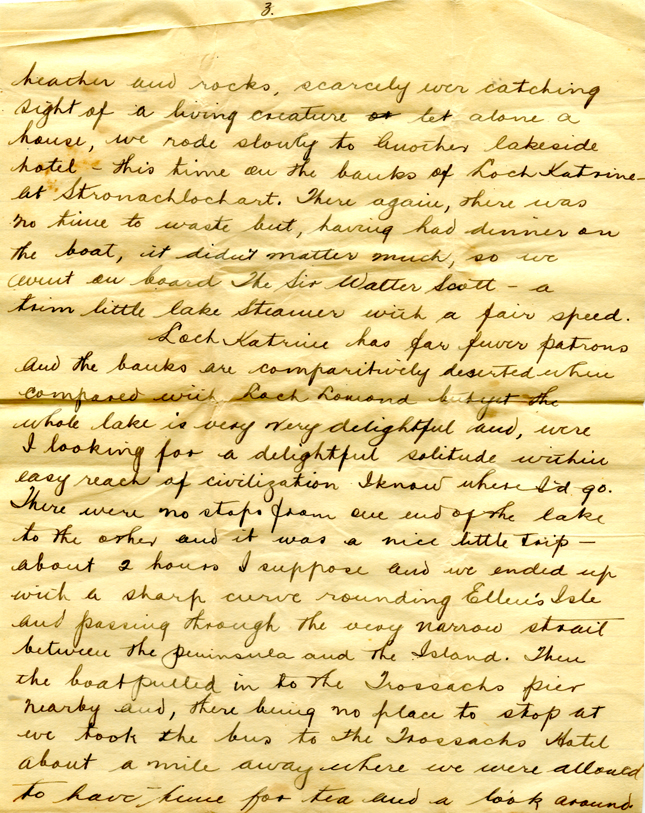 3.
heather and rocks, scarcely ever catching
sight of a living creature or let alone a
house, we rode slowly to another lakeside
hotel - this time on the banks of Loch Katrine -
at Stronachlochart. There again, there was
no time to waste but, having had dinner on
the boat, it didn't matter much, so we
went on board The Sir Walter Scott - a
trim little lake steamer with a fair speed.
Loch Katrine has far fewer patrons
and the banks are comparitively deserted when
compared with Loch Lomond but yet the
whole lake is very very delightful and, were
I looking for a delightful solitude within
easy reach of civilization I know where I'd go.
There were no stops from one end of the lake
to the other and it was a nice little trip -
about 2 hours I suppose and we ended up
with a sharp curve rounding Ellen's Isle
and passing through the very narrow strait
between the peninsula and the Island. Then
the boat pulled in to the Trossachs pier
nearby and, there being no place to stop at
we took the bus to the Trossachs Hotel
about a mile away where we were allowed
to have time for tea and a look around